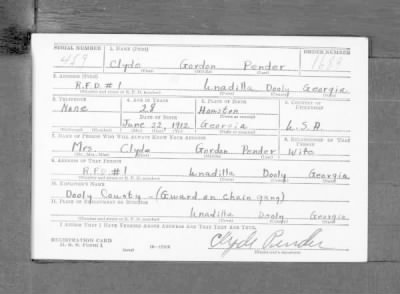 SERIAL NUMBER 1. NAME (Print) ORDER NUMBER
459 Clyde Gordon Pender 1689
(First) (Middle) (Last)
2. ADDRESS (Print)
R.F.D. #1 Unadilla Dooly Georgia
(Number and street or R. F. D. number) (Town) (County) (State)
3. TELEPHONE 4. AGE IN YEARS 5. PLACE OF BIRTH 6. COUNTRY OF CITIZENSHIP
None 28 Houston
DATE OF BIRTH (Town or county)
June 22, 1912 Georgia U.S.A.
(Exchange) (Number) (Mo.) (Day) (Yr.) (State or country)
7. NAME OF PERSON WHO WILL ALWAYS KNOW YOUR ADDRESS 8. RELATIONSHIP OF THAT PERSON
Mrs. Clyde Gordon Pender Wife
(Mr., Mrs., Miss) (First) (Middle) (Last)
9. ADDRESS OF THAT PERSON
R.F.D. #1 Unadilla Dooly Georgia
(Number and street or R. F. D. number) (Town) (County) (State)
10. EMPLOYER'S NAME
Dooly County - (Guard on chain gang)
11. PLACE OF EMPLOYMENT OR BUSINESS
Unadilla Dooly Georgia
(Number and street or R. F. D. number) (Town) (County) (State)
I AFFIRM THAT I HAVE VERIFIED ABOVE ANSWERS AND THAT THEY ARE TRUE.
REGISTRATION CARD
D. S. S. Form 1 (over) Clyde Pender
(Registrant's signature)